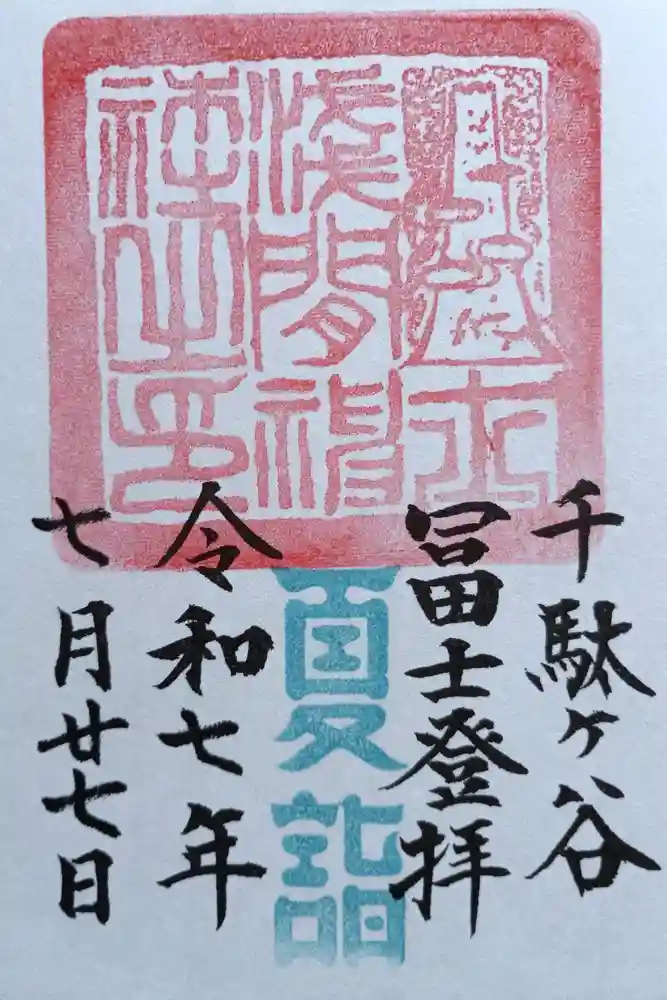 千駄ヶ谷
冨士登拝
夏詣
令和七年
七月廿七日
冨士
浅間神
社之印